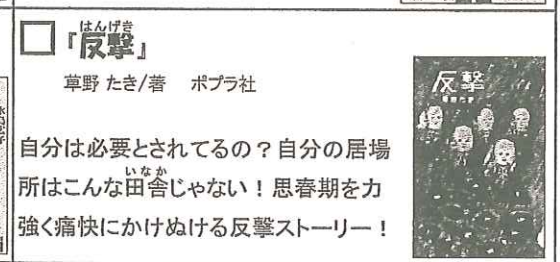 □『反撃』
はんげき
草野 たき/著 ポプラ社
自分は必要とされてるの?自分の居場
所はこんな田舎じゃない!思春期を力
いなか
強く痛快にかけぬける反撃ストーリー!
反撃
草野たき